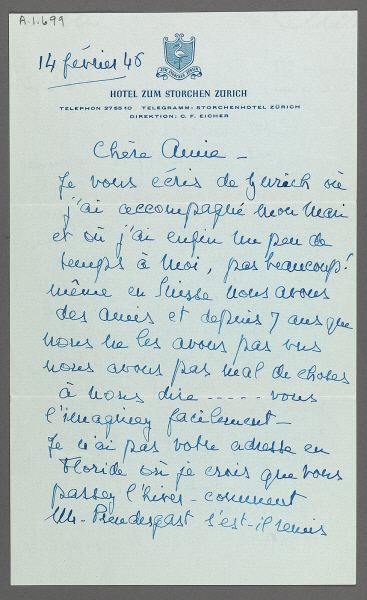 A.1.699
14 février 46
ZUM STORCHEN ZÜRICH
HOTEL ZUM STORCHEN ZÜRICH
TELEPHON 27 55 10 TELEGRAMM: STORCHENHOTEL ZÜRICH
DIREKTION: C. F. EICHER
Chère Annie –
Je vous écris de Zurich où
j'ai accompagné mon mari
et où j'ai enfin un peu de
temps à moi, pas beaucoup!
même en Suisse nous avons
des amis et depuis 7 ans que
nous ne les avons pas vus
nous avons pas mal de choses
à nous dire ----- vous
l'imaginez facilement –
Je n'ai pas votre adresse en
Floride où je crois que vous
passez l'hiver – comment
Mr. Prendergast s'est-il remis